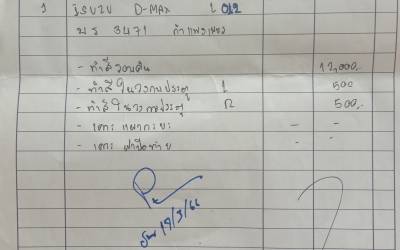 1 ISUZU D-MAX L 042
ผร 3471 กำแพงเพชร
- ทำสีรอบคัน 12,000.-
- ทำสีในวงกบประตู L 500
- ทำสีในวงกบประตู R 500.-
- เคาะ แผงกระบะ - -
- เคาะ ฝาปิดท้าย - -
19/3/66